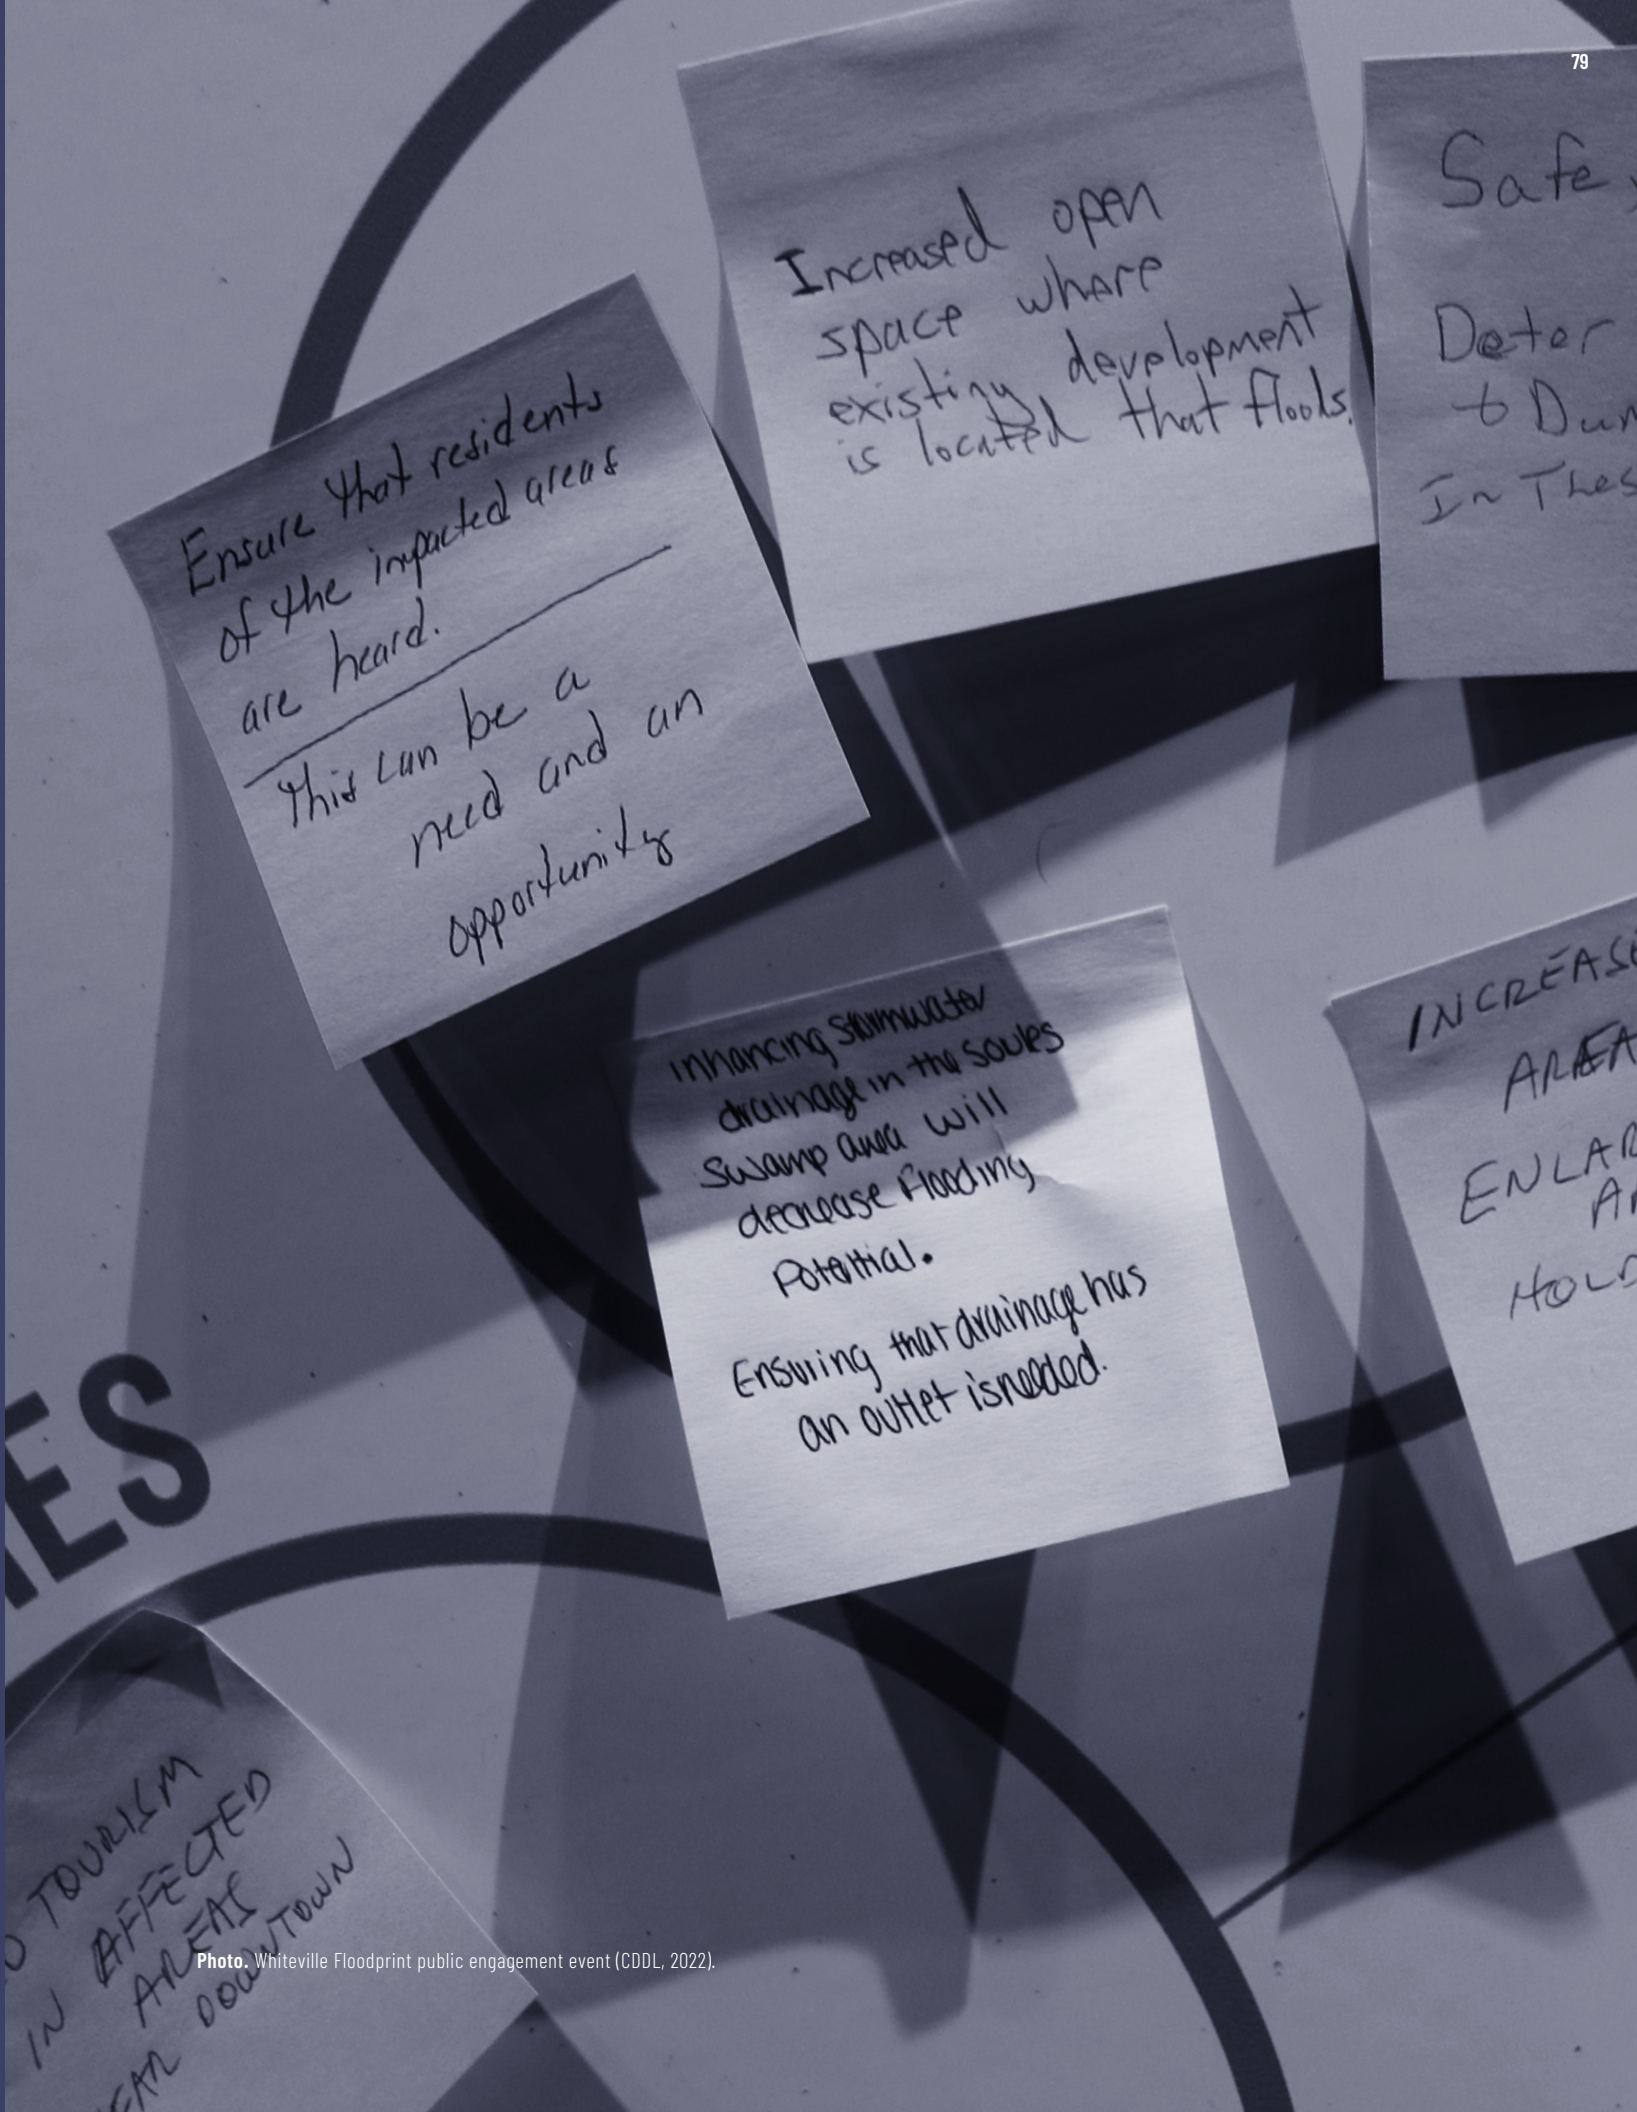 79
Increased open
space where
existing development
is located that floods.
Safe,
Deter
to Dum
In Thes
Ensure that residents
of the impacted areas
are heard.
This can be a
need and an
opportunity
inhancing stormwater
drainage in the soules
swamp area will
decrease flooding
potential.
Ensuring that drainage has
an outlet is needed.
INCREASE
AREA
ENLAR
HOLD
ES
TOURISM
IN AFFECTED
AREAS
DOWNTOWN
Photo. Whiteville Floodprint public engagement event (CDDL, 2022).